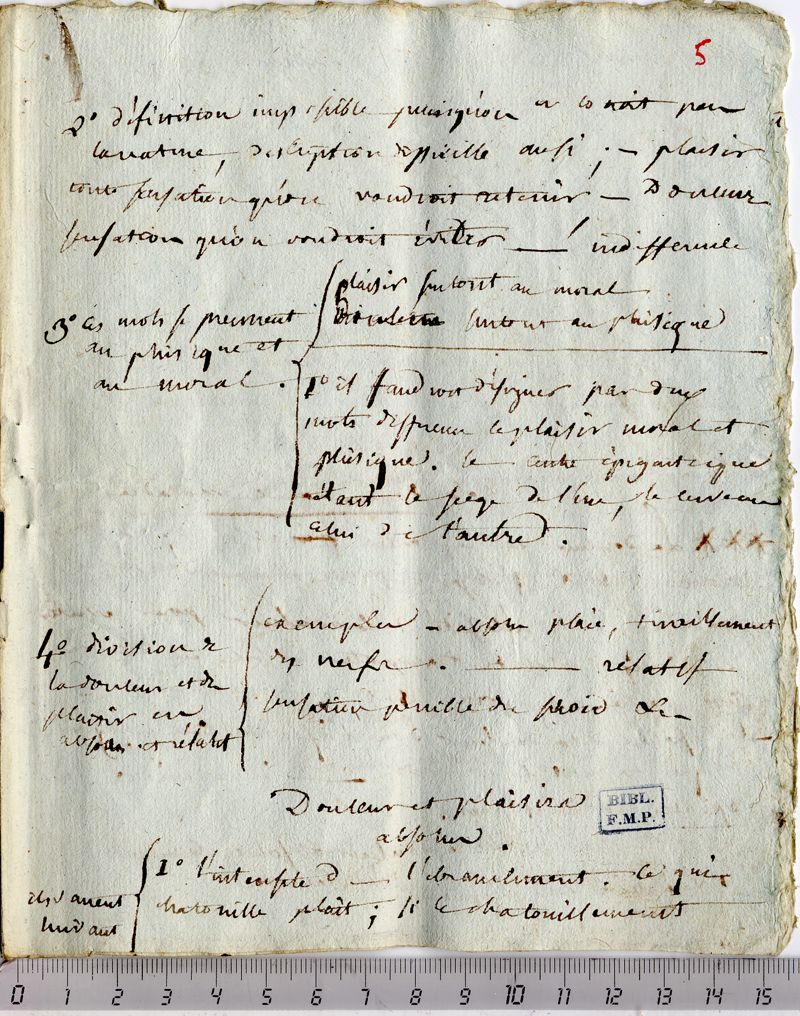 5
2° définition impossible puisqu'on en connoit peu
la nature, description difficile aussi ; — plaisir
toute sensation qu'on voudroit retenir — Douleur
sensation qu'on voudroit éviter — indifference
3° Ces mots se prennent
au phisique et
au moral.
plaisir surtout au moral
Douleur surtout au phisique
1° il faudroit désigner par deux
mots differens le plaisir moral et
phisique. le centre épigastrique
étant le siege de l'une, le cerveau
celui de l'autre.
4° division de
la douleur et du
plaisir en
absolu et rélatif
exemples — absolu plaie, tiraillement
des nerfs. — relatif
sensation penible du froid &c
Douleur et plaisirs
absolus.
BIBL.
F.M.P.
suivant
1° l' d l'ebranlement. Ce qui
chatouille plait ; si le chatouillement
0 1 2 3 4 5 6 7 8 9 10 11 12 13 14 15